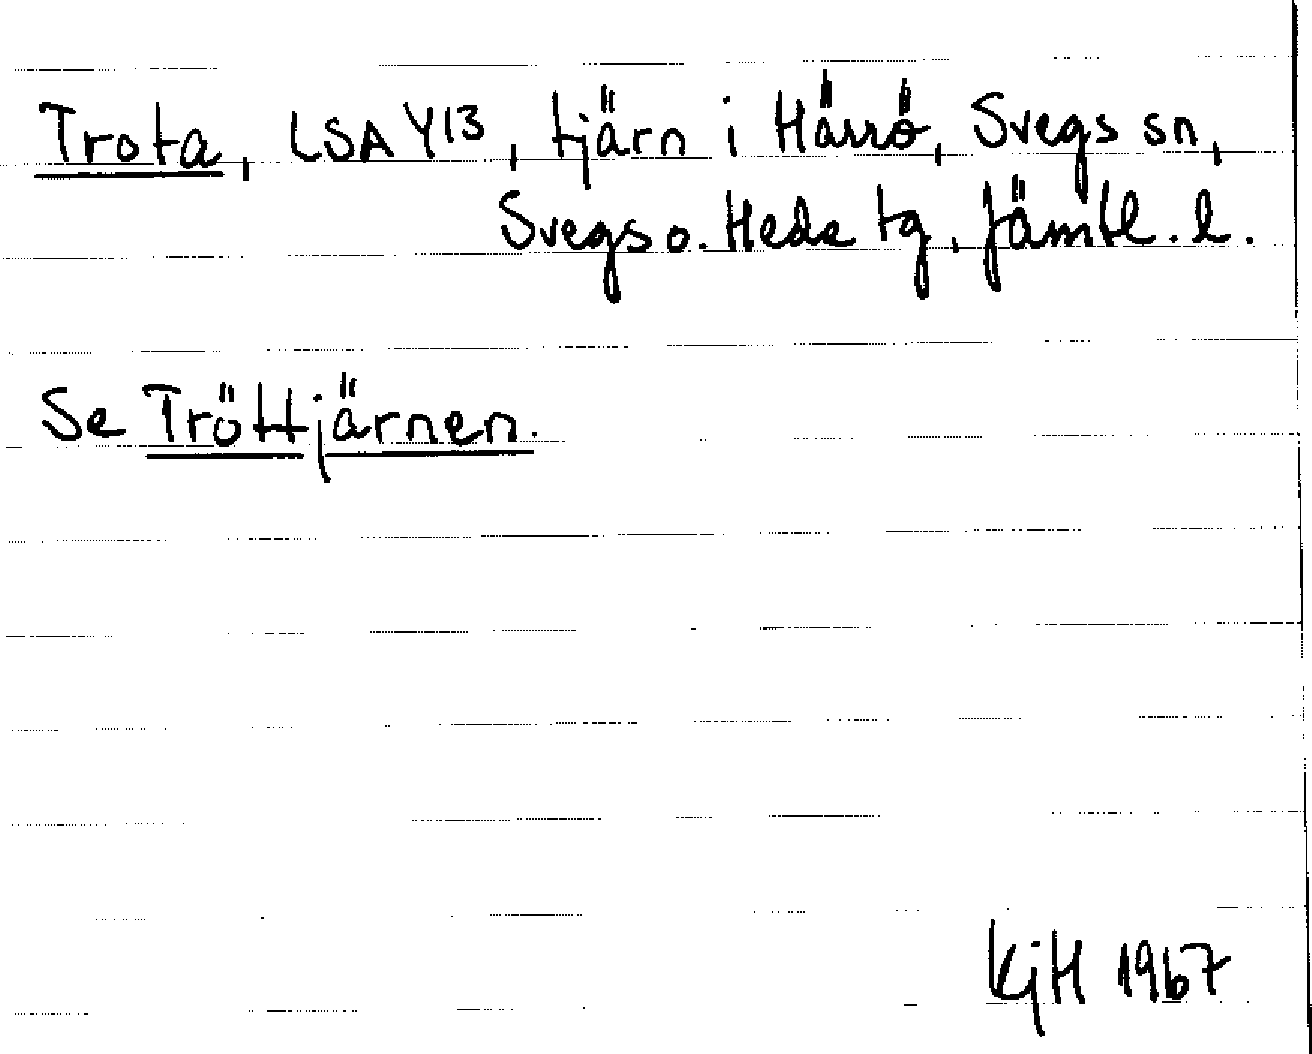 Trota, LSA Y13, tjärn i Härrö, Svegs sn,
Svegs o. Heds tg, Jämtl. l.
Se Tröttjärnen.
KjH 1967